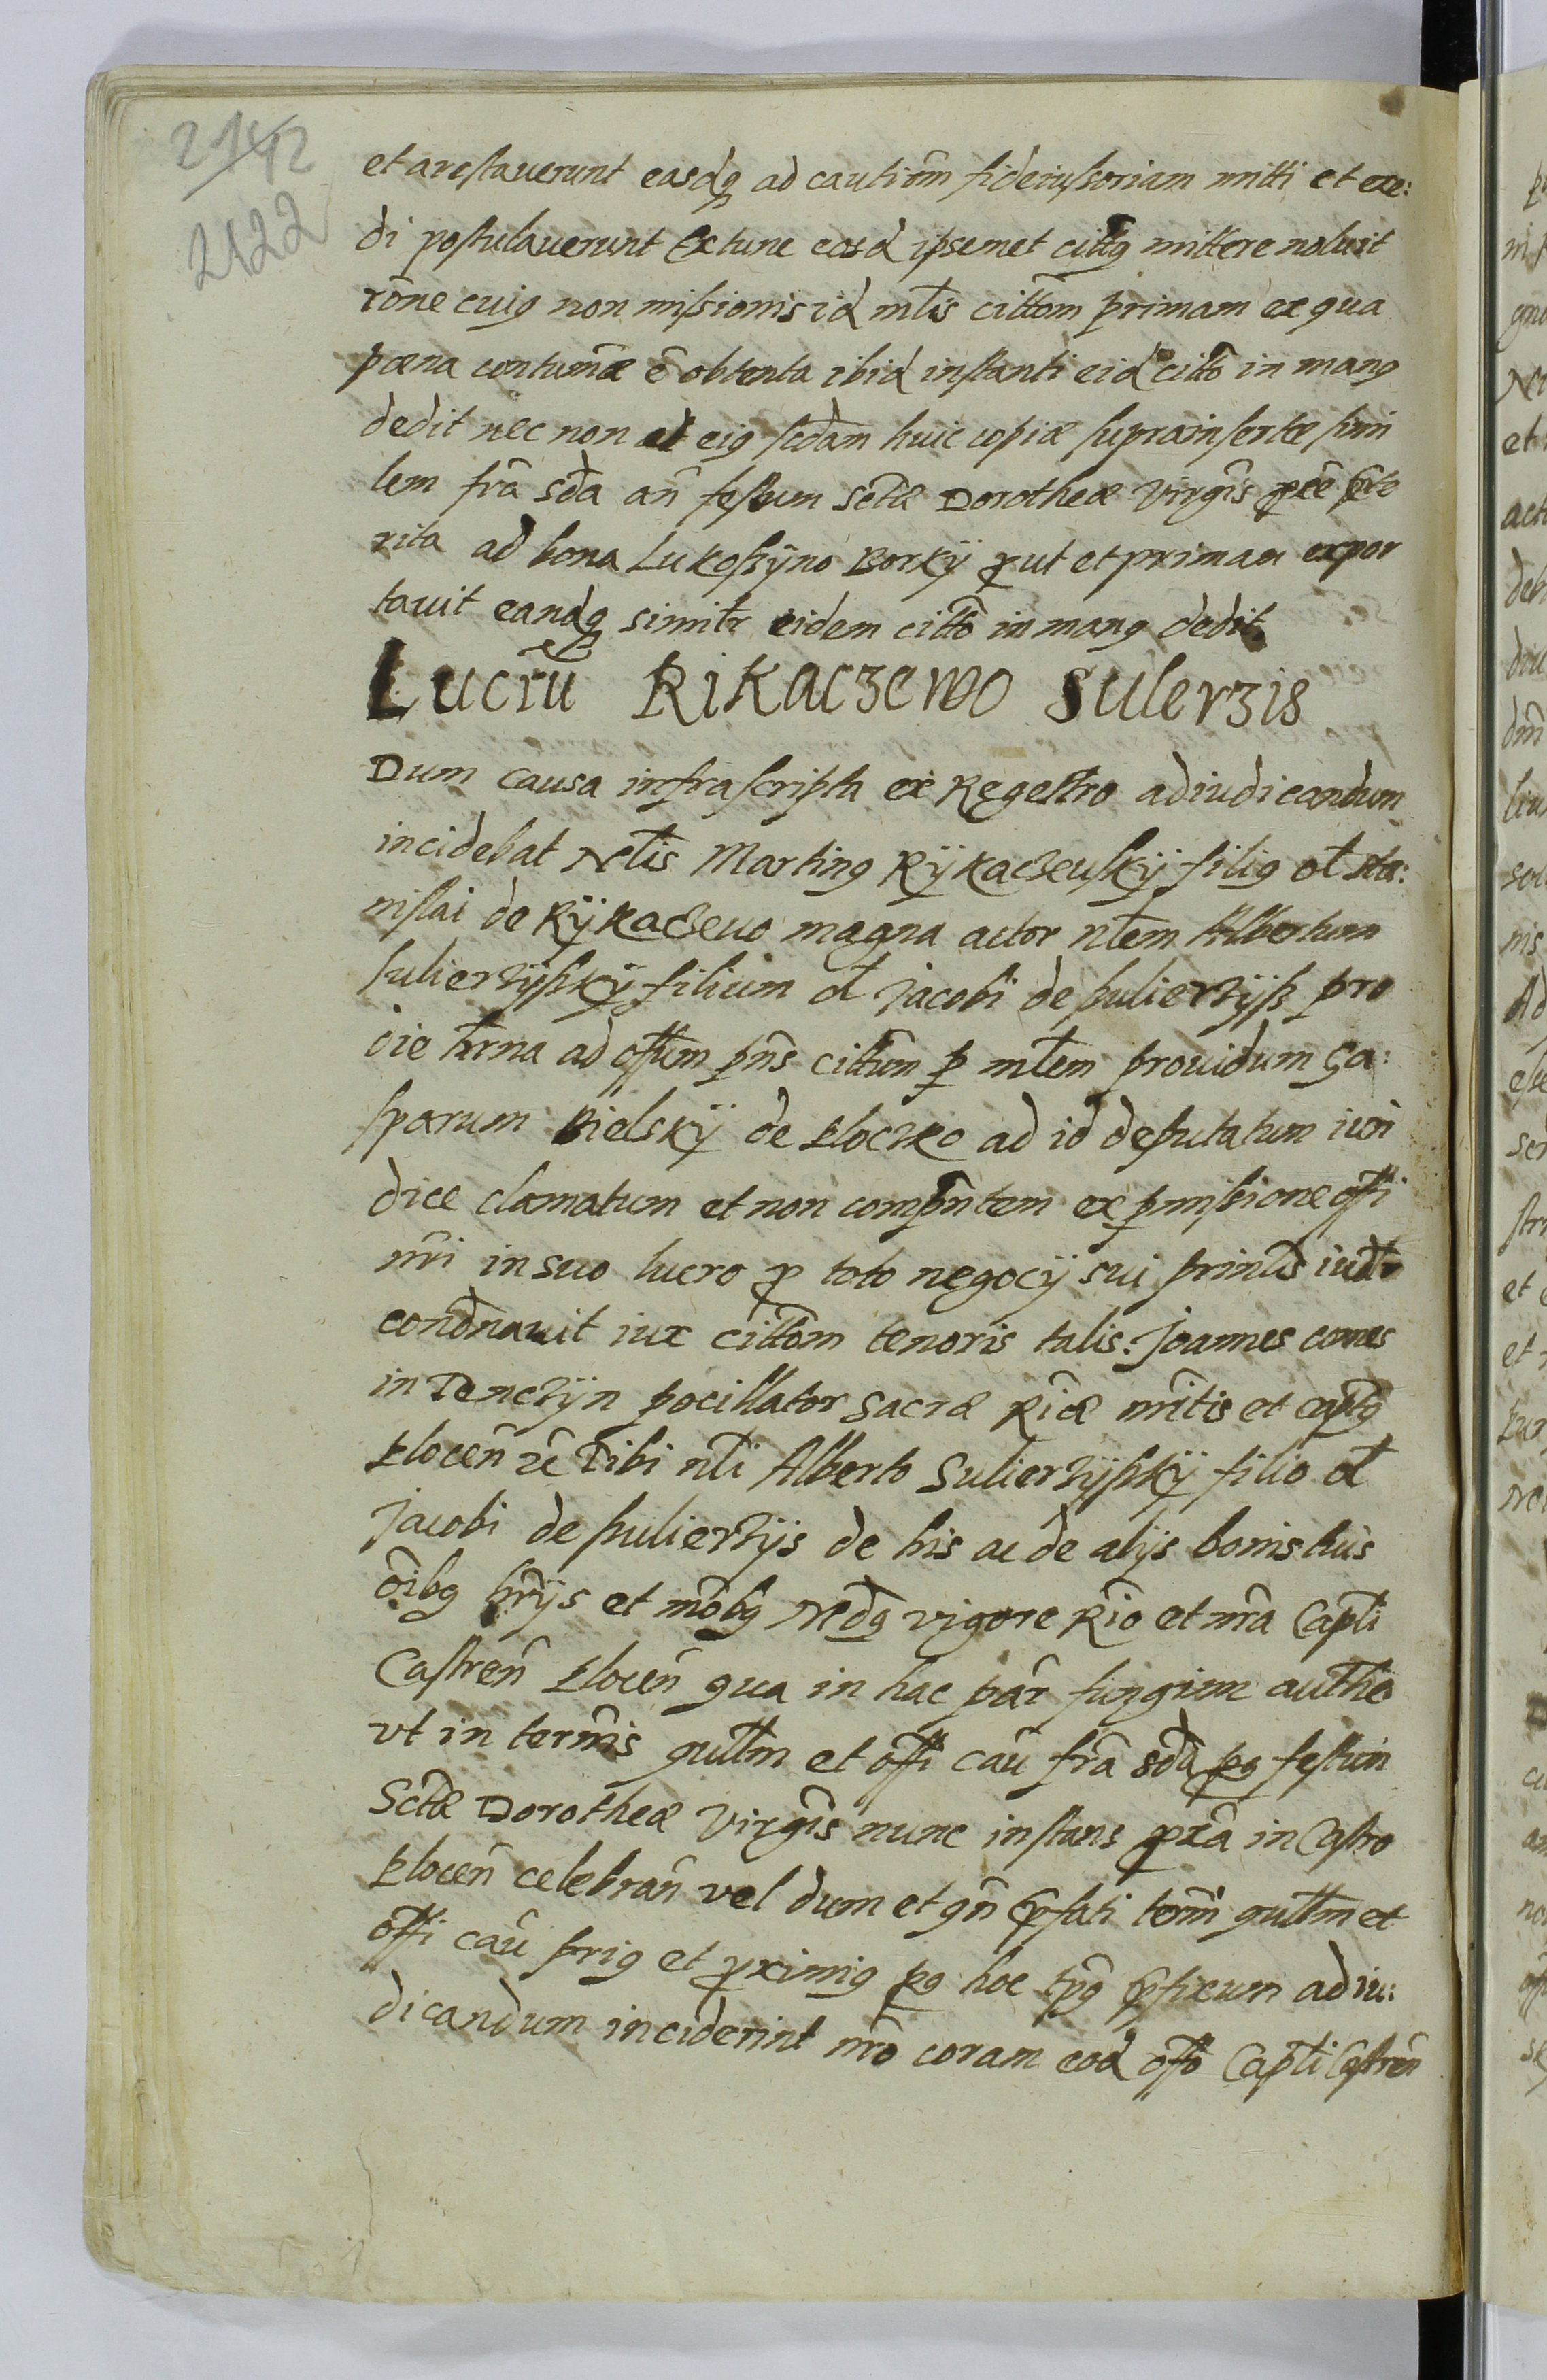 2142
2122
et arestauerunt easdq ad cautiom̃ fideiussoriam mitti et exe:
di postulauerunt Ex tunc easd ipsemet cittq mittere noluit
rõne cuiq non missionis id mltis cittom̃ primam ex qua
pœna contum̃æ ẽ obtenta ibid instanti eid citto in manq
dedit nec non et eiq scdam huic copiæ suprainsertæ simi
lem frã sda an̄ festum Sctæ Dorotheæ virgis̃
rita ad bona Lukossÿno Borkÿ ꝓut et primam expor
tauit eandq similr eidem citto in manq dedit
Lucrũ Rikaczewo Sulerzis
Dum causa infrascripta ex Regestro adiudicandum
incidebat Nltis Martinq Rÿkaczeuskÿ filiq ol Sta:
nislai de Rÿkaczeuo magna actor nltem Albertum
Sulierzÿskÿ filium ol Jacobi de sulierzÿss pro
die hrna ad offum pñs cittum̃ p mltem prouidum Ga:
sparum Bielskÿ de Ploczko ad id deputatum iuri
dice clamatum et non compñtem ex pmissione offi
nri in suo lucro ꝓ toto negocÿ sui printis iudr
condnauit iux cittom̃ tenoris talis: Joannes comes
in Tenczÿn pocillator Sacræ Riæ mtis et captq
Plocen̄ rc̄ Tibi nli Alberto Sulierzÿskÿ filio ol
Jacobi de sulierzÿs de his ac de alÿs bonis tuis
oibq hrÿs et mobq Ndq vigore Rio et nra Capti
Castren̄ Plocen̄ qua in hac par̃ fungim̃ autthe
vt in termis quttm et offi cau frã sda pq festum
Sctæ Dorotheæ Virgis nunc instans ꝓxã in Castro
Plocen̄ celebran̄ vel dum et qn̄ pfati termi quttm et
offi cau priq et ꝓximiq pq hoc tpq pfixum adiu:
dicandum inciderint nro coram eod offo Capti Castren̄